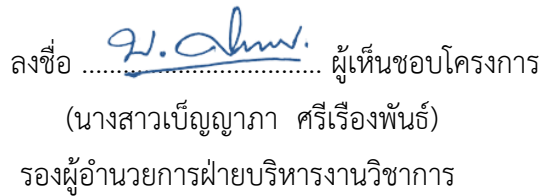 ลงชื่อ .................................... ผู้เห็นชอบโครงการ
(นางสาวเบ็ญญาภา ศรีเรืองพันธ์)
รองผู้อำนวยการฝ่ายบริหารงานวิชาการ